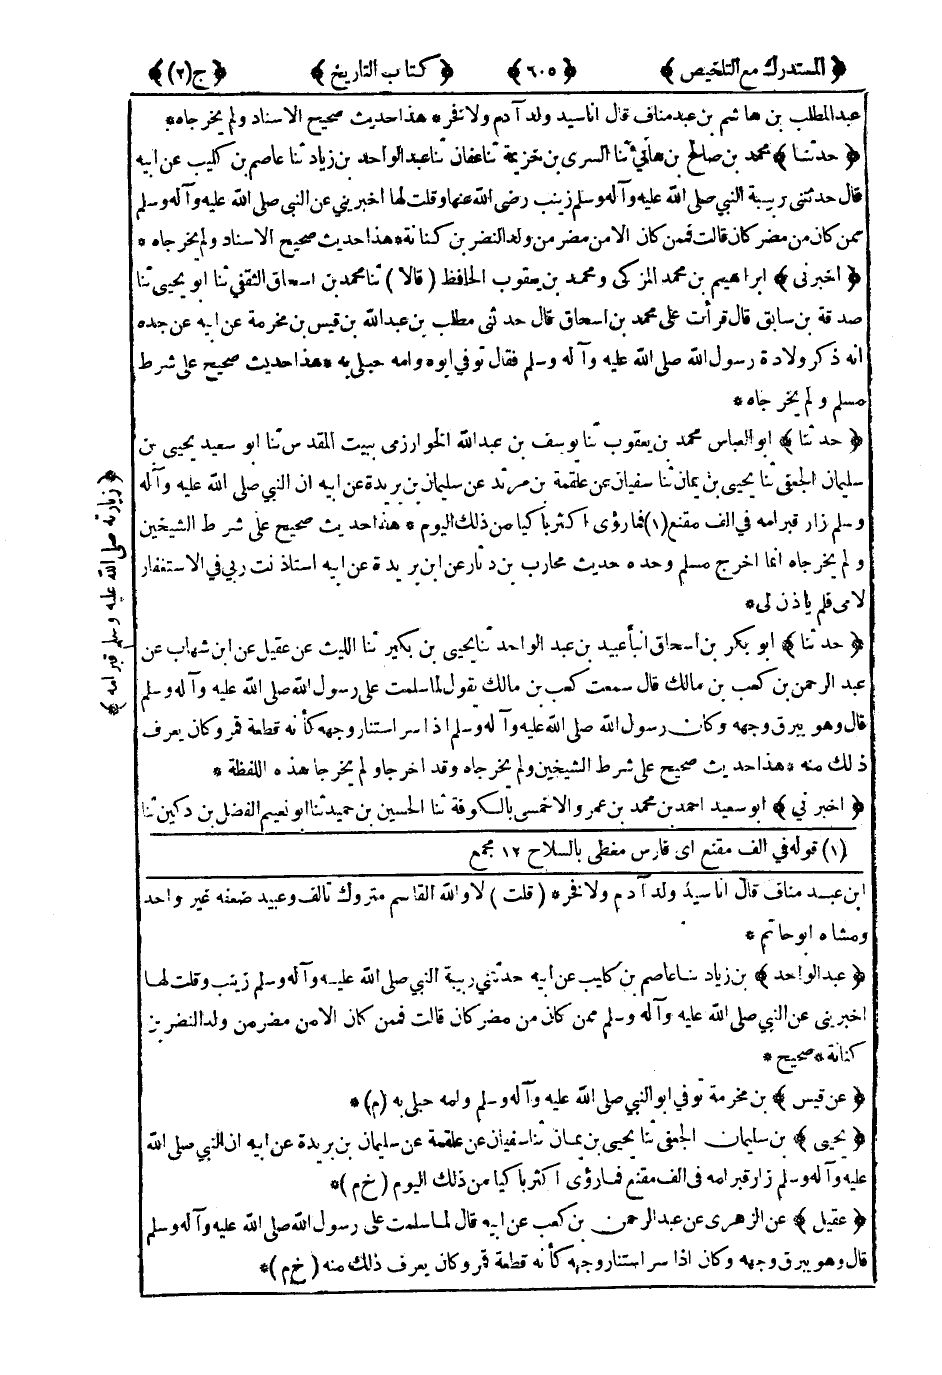 ﴿ المستدرك مع التلخيص ﴾ ﴿ ٦٠٥ ﴾ ﴿ كتاب التاريخ ﴾ ﴿ ج (٢) ﴾
عبدالمطلب بن هاشم بن عبدمناف قال اناسيد ولد آدم ولافخر * هذا حديث صحيح الاسناد ولم يخرجاه *
﴿ حدثنا ﴾ محمد بن صالح بن هانئ ثنا السرى بن خزيمة ثنا عفان ثنا عبدالواحد بن زياد ثنا عاصم بن كليب عن ابيه
قال حدثتنى ربيبة النبي صلى الله عليه وآله وسلم زينب رضى الله عنها وقلت لها اخبرينى عن النبي صلى الله عليه وآله وسلم
ممن كان من مضر كان قالت فممن كان الامن مضر من ولد النضر بن كنانة * هذا حديث صحيح الاسناد ولم يخرجاه *
﴿ اخبرنى ﴾ ابراهيم بن محمد المزكى ومحمد بن يعقوب الحافظ ( قالا ) ثنا محمد بن اسحاق الثقفي ثنا ابو يحيى ثنا
صدقة بن سابق قال قرأت على محمد بن اسحاق قال حدثنى مطلب بن عبدالله بن قيس بن مخرمة عن ابيه عن جده
انه ذكر ولادة رسول الله صلى الله عليه وآله وسلم فقال توفي ابوه وامه حبلى به * هذا حديث صحيح على شرط
مسلم ولم يخرجاه *
﴿ حدثنا ﴾ ابو العباس محمد بن يعقوب ثنا يوسف بن عبدالله الخوارزمى ببيت المقدس ثنا ابو سعيد يحيى بن
سليمان الجعفى ثنا يحيى بن يمان ثنا سفيان عن علقمة بن مرثد عن سليمان بن بريدة عن ابيه ان النبي صلى الله عليه وآله
وسلم زار قبر امه في الف مقنع (١) فمارؤى اكثر باكيا من ذلك اليوم * هذا حديث صحيح على شرط الشيخين
ولم يخرجاه انما اخرج مسلم وحده حديث محارب بن دثار عن ابن بريدة عن ابيه استاذنت ربي في الاستغفار
لامى فلم ياذن لى *
﴿ حدثنا ﴾ ابو بكر بن اسحاق انبأ عبيد بن عبد الواحد ثنا يحيى بن بكير ثنا الليث عن عقيل عن ابن شهاب عن
عبد الرحمن بن كعب بن مالك قال سمعت كعب بن مالك يقول لما سلمت على رسول الله صلى الله عليه وآله وسلم
قال وهو يبرق وجهه وكان رسول الله صلى الله عليه وآله وسلم اذا سر استنار وجهه كأنه قطعة قمر وكان يعرف
ذلك منه * هذا حديث صحيح على شرط الشيخين ولم يخرجاه وقد اخرجاه ولم يخرجا هذه اللفظة *
﴿ اخبرني ﴾ ابو سعيد احمد بن محمد بن عمرو الاخمسى بالكوفة ثنا الحسين بن حميد ثنا ابو نعيم الفضل بن دكين ثنا
(١) قوله في الف مقنع اى فارس مغطى بالسلاح ١٢ مجمع
ابن عبد مناف قال اناسيد ولد آدم ولافخر * ( قلت ) لا والله القاسم متروك تالف وعبيد ضعفه غير واحد
ومشاه ابوحاتم *
﴿ عبدالواحد ﴾ بن زياد ثنا عاصم بن كليب عن ابيه حدثتني ربيبة النبي صلى الله عليه وآله وسلم زينب وقلت لها
اخبرينى عن النبي صلى الله عليه وآله وسلم ممن كان من مضر كان قالت فممن كان الامن مضر من ولد النضر بن
كنانة * صحيح *
﴿ عن قيس ﴾ بن مخرمة توفي ابو النبي صلى الله عليه وآله وسلم وامه حبلى به (م) *
﴿ يحيى ﴾ بن سليمان الجعفى ثنا يحيى بن يمان ثنا سفيان عن علقمة عن سليمان بن بريدة عن ابيه ان النبي صلى الله
عليه وآله وسلم زار قبر امه فى الف مقنع فمارؤى اكثر باكيا من ذلك اليوم (خ م) *
﴿ عقيل ﴾ عن الزهرى عن عبدالرحمن بن كعب عن ابيه قال لما سلمت على رسول الله صلى الله عليه وآله وسلم
قال وهو يبرق وجهه وكان اذا سر استنار وجهه كأنه قطعة قمر وكان يعرف ذلك منه ( خ م ) *
﴿ زيارته صلى الله عليه وسلم قبر امه ﴾